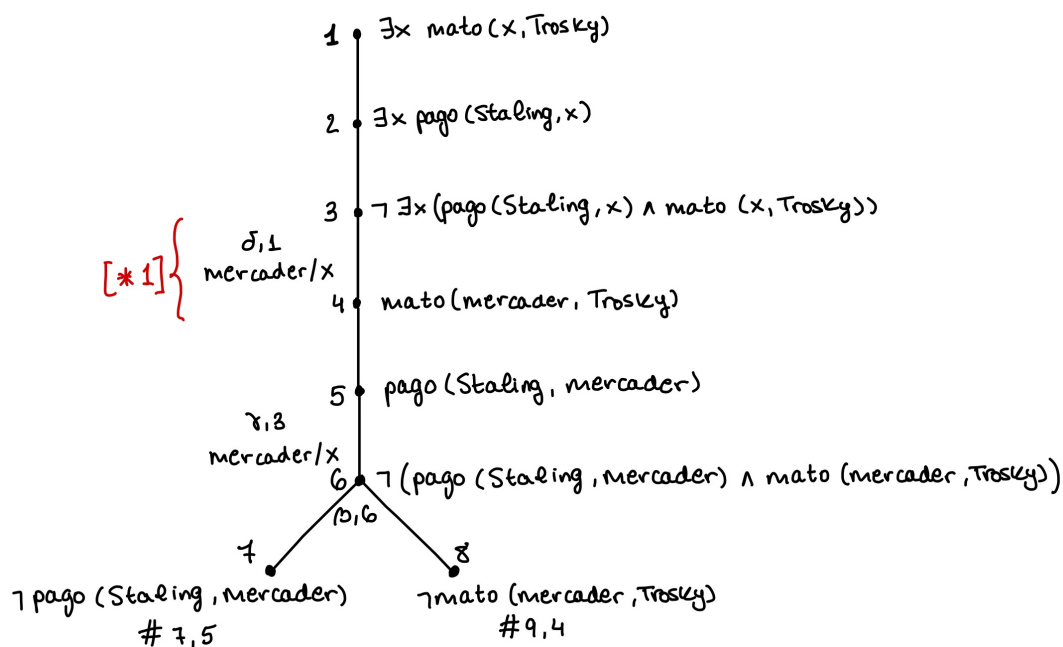 1 ∃x mato (x, Trosky)
2 ∃x pago (Staling, x)
3 ¬ ∃x (pago (Staling, x) ∧ mato (x, Trosky))
[*1]{
δ,1
mercader/x
4 mato (mercader, Trosky)
5 pago (Staling, mercader)
γ,3
mercader/x
6 ¬ (pago (Staling, mercader) ∧ mato (mercader, Trosky))
β,6
7
8
¬ pago (Staling, mercader)
¬ mato (mercader, Trosky)
# 7,5
# 9,4